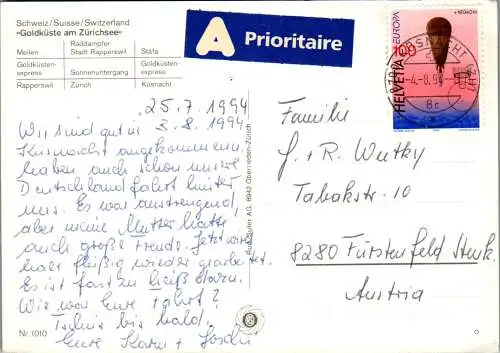 Schweiz/Suisse/Switzerland
«Goldküste am Zürichsee»
Meilen Raddampfer Stadt Rapperswil Stäfa
Goldküsten-express Sonnenuntergang Goldküsten-express
Rapperswil Zürich Küsnacht
A Prioritaire
EUROPA
100
HELVETIA
-4.-8.94
25.7.1994
3.8.1994
Wir sind gut in
Küsnacht angekommen
haben auch schon unsere
Deutschlandfahrt hinter
uns. Es war anstrengend,
aber meine Mutter hatte
auch große Freude. Jetzt wird
hier fleißig wieder gearbeitet.
Es ist fast zu heiß dazu.
Wie war Eure Fahrt?
Tschüs bis bald.
Eure Karin +
Familie
J. + R. Wutky
Tabakstr. 10
8280 Fürstenfeld Stmk.
Austria
AG, 8942 Oberrieden-Zürich
Nr. 1010